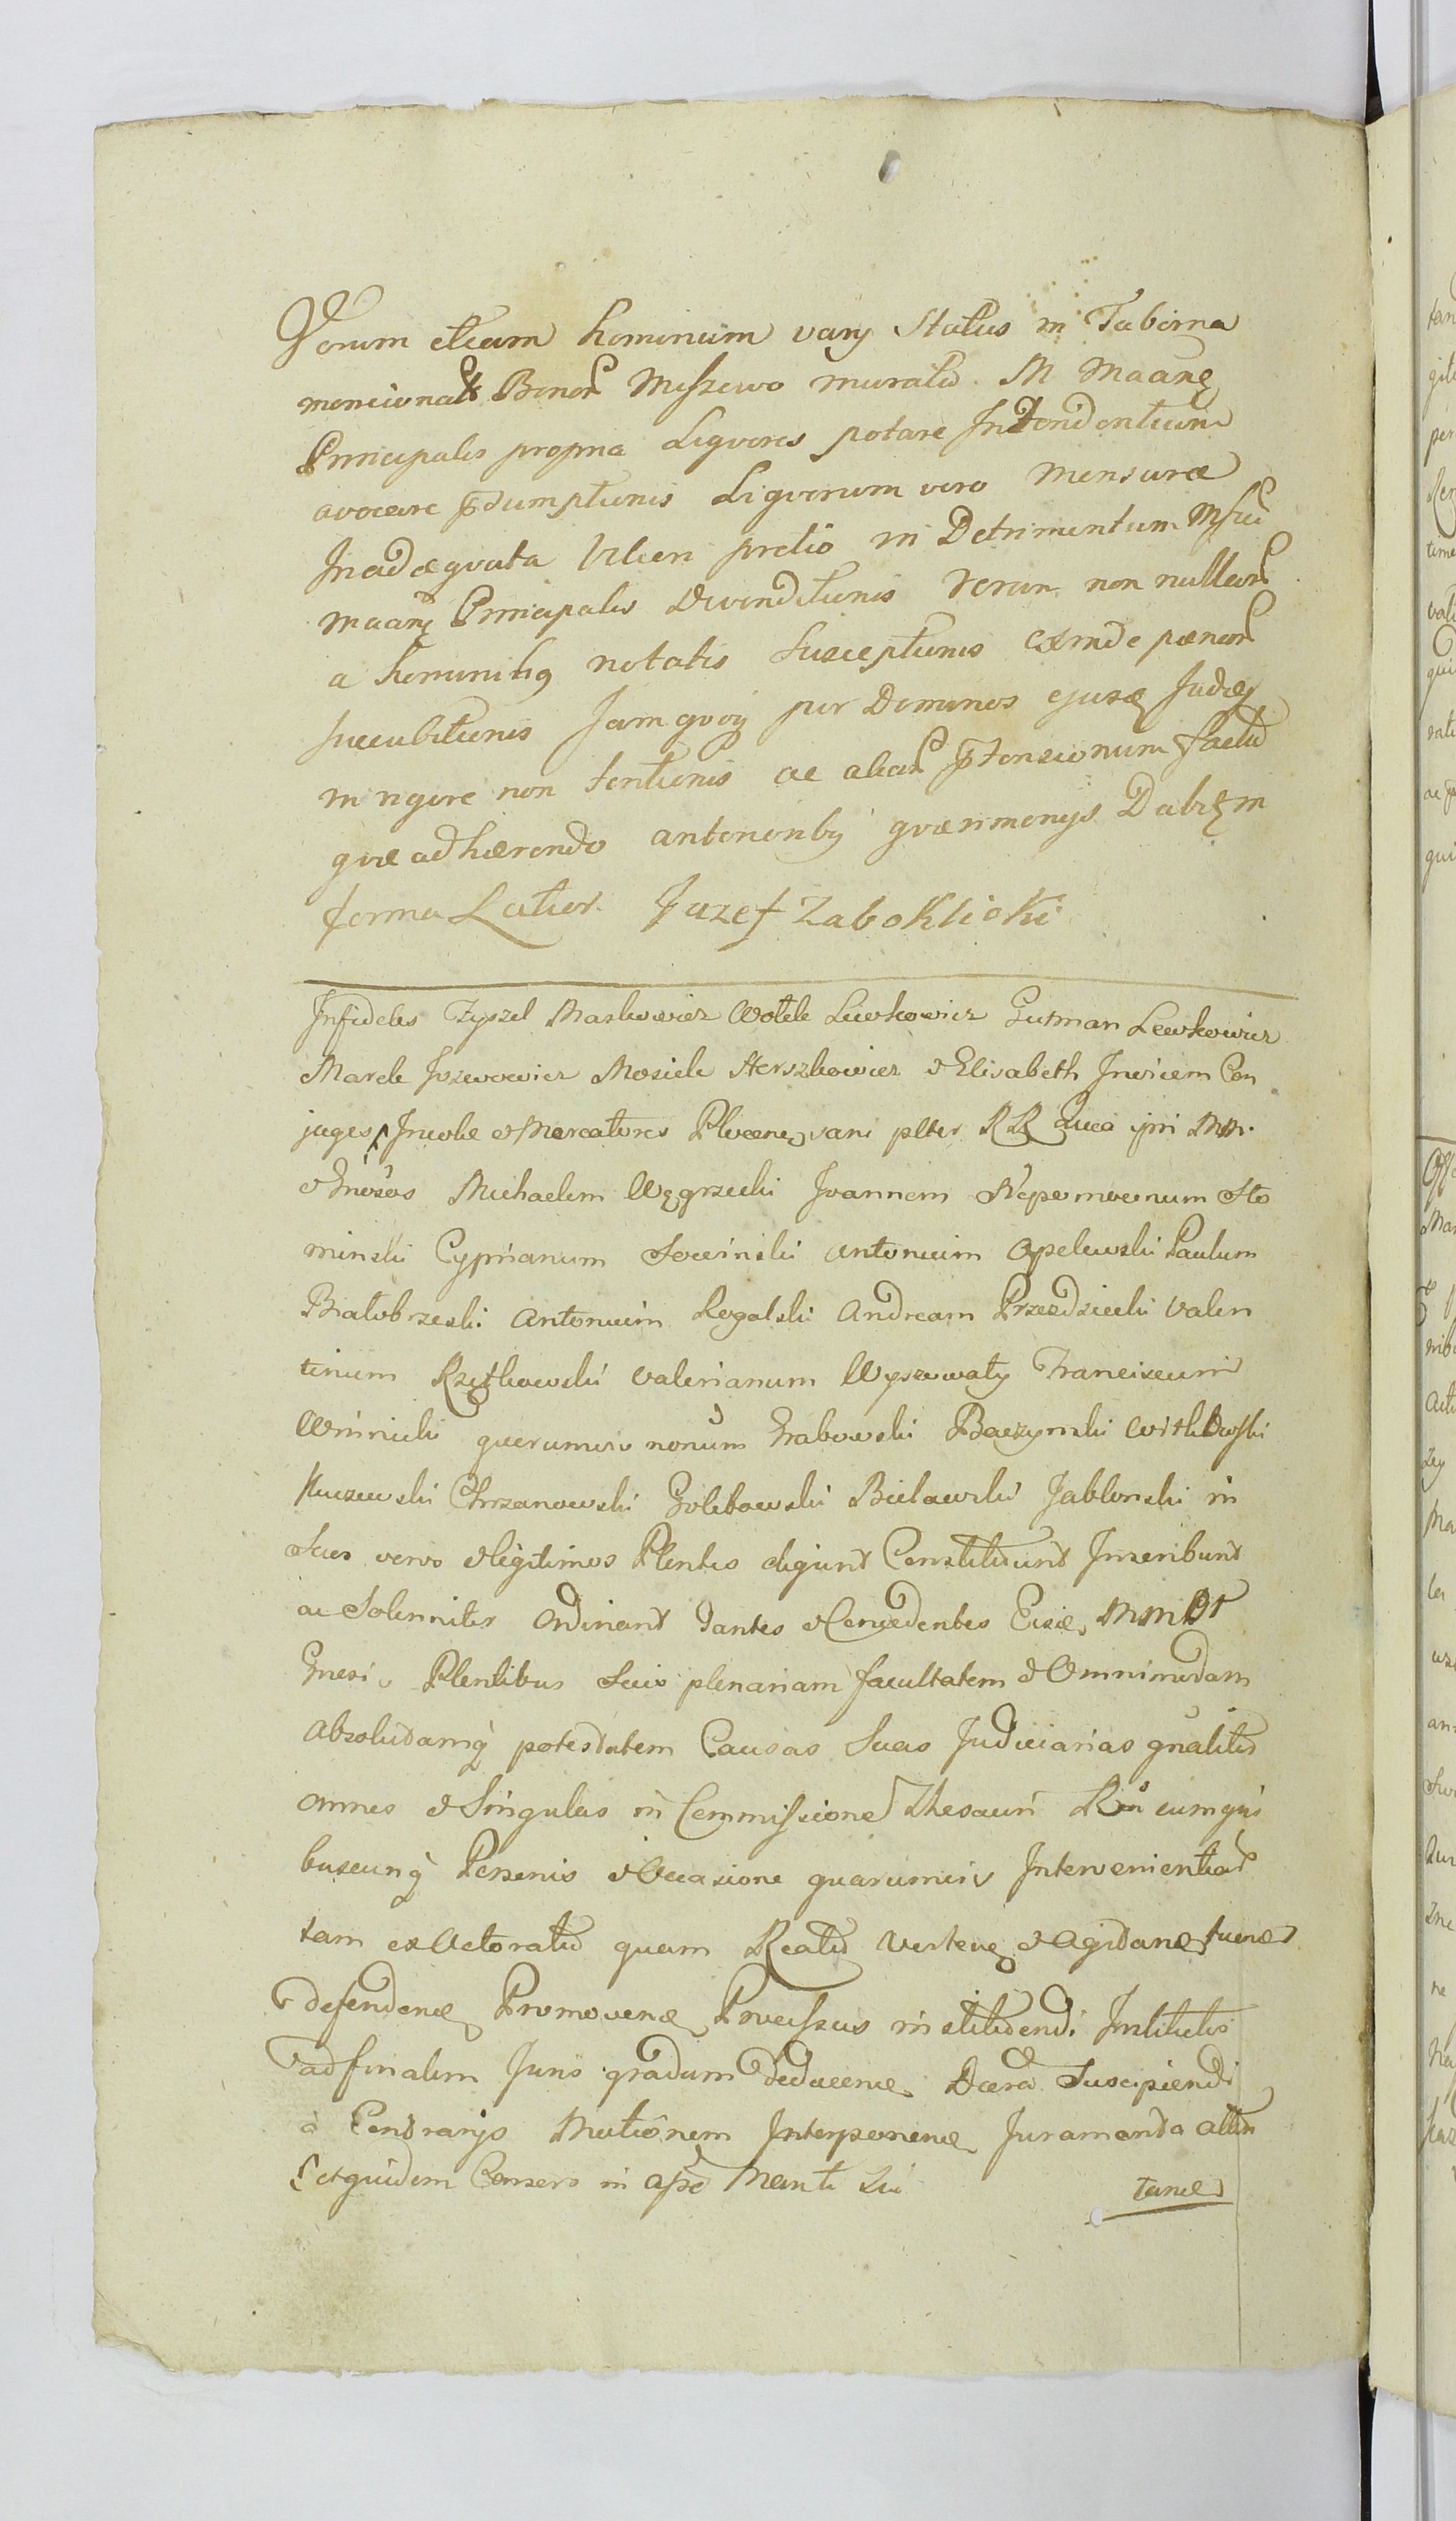 Verum etiam hominum varij Status in Taberna
mencionat Bonor Miszewo murata M Maanę
Principalis propria Liqvores potare Intendentium
avocare pdumptionis Liqvorum vero mensuræ
Inadæqvata Viliori pretio in Detrimentum
Maanę Principalis Divenditionis Rerum non nullar
a hominibq notatis Susceptionis exinde pænar
succubitionis Jam qvoq per Dominos ejusæ Judæ
in rigore non tentionis ac aliar ptensionum factu
qvæ adhærendo anterioribq qværimonijs Dabit in
forma Latior. Jozef Zaboklicki
Infideles Zyszel Markowicz Wolek Lewkowicz Gutman Lewkowicz
Marek Jozwowicz Mosiek Herszkowicz & Elisabeth Invicem Con
juges Incolæ & Mercatores Plocen vari plter RR ipsi MM.
& Gnosos Michaelem Węgrzecki Joannem Nepomocenum Sto
minski Cyprianum Sowinski Antonium Opelewski Paulum
Białobrzeski Antonium Rogalski Andream Przezdziecki Valen
tinum Rzętkowski Valerianum Wyszowaty Franciscum
Winnicki quorumvis nonum Grabowski Baczynski Witkowski
Kuczewski Chrzanowski Golebiowski Bielawski Jablonski in
Suos veros & legitimos Plentes eligunt Constituunt Inscribunt
ac Solenniter Ordinant Dantes & Concedentes Eisæ MM DD
Gnosi Plentibus Suis plenariam facultatem & Omnimodam
Absolutamq potestatem Causas Suas Judiciarias gnaliter
omnes & Singulas in Commissione Thesauri Rni cumqui
buscunq Personis & Occasione quarumvis Intervenientiar
tam ex Actoratu quam Reatu Verten & Agitanæ tuenæ
defendenæ Promovenæ Processus instituendi Institutis
ad finalem Juris gradum deducenæ Dcera Suscipiendi
à Contrarijs Motionem Interponenæ Juramenta attin
etquidem Censero in
tanæ